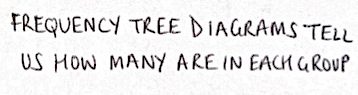 FREQUENCY TREE DIAGRAMS TELL
US HOW MANY ARE IN EACH GROUP